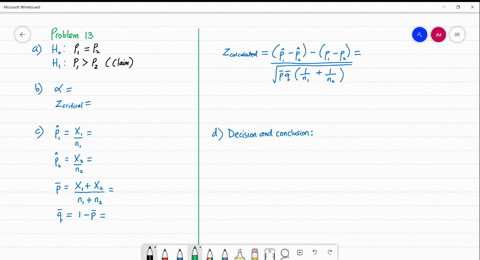 Microsoft Whiteboard
Problem 13
a) H₀: P₁ = P₂
H₁: P₁ > P₂ (Claim)
b) α =
Zcritical =
c) p̂₁ = X₁/n₁ =
p̂₂ = X₂/n₂ =
p̄ = (X₁ + X₂)/(n₁ + n₂) =
q̄ = 1 - p̄ =
Zcalculated = ((p̂₁ - p̂₂) - (p₁ - p₂))/√(p̄ q̄ (1/n₁ + 1/n₂)) =
d) Decision and conclusion: